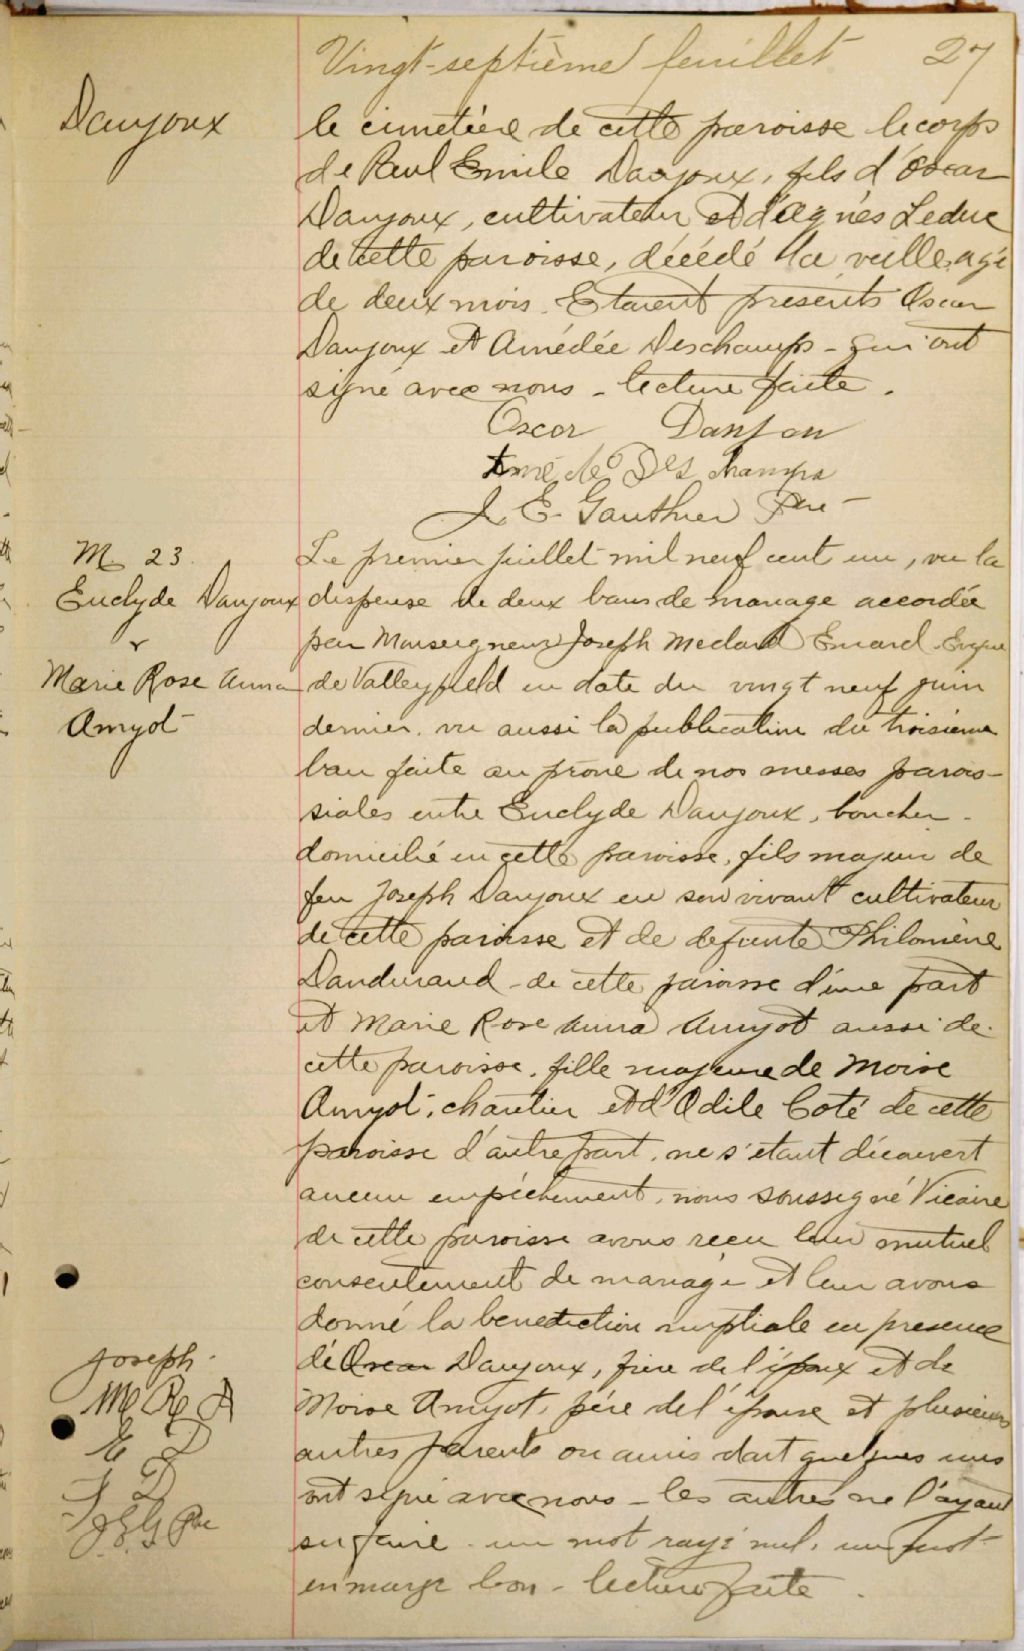 Vingt-septième feuillet 27
Danjoux
le cimetière de cette paroisse le corps
de Paul Emile Danjoux, fils d'Oscar
Danjoux, cultivateur et d'Agnès Leduc
de cette paroisse, décédé la veille, agé
de deux mois. Etaient présents Oscar
Danjoux et Amédée Deschamps - qui ont
signé avec nous - lecture faite.
Oscor Danjou
Amédé Des champs
J. E. Gauthier Ptre
M 23.
Euclyde Danjoux
&
Marie Rose Anna
Amyot
Le premier juillet mil neuf cent un, vu la
dispense de deux bans de mariage accordée
par Monseigneur Joseph Medard Emard Evêque
de Valleyfield en date du vingt neuf juin
dernier, vu aussi la publication du troisième
ban faite au prône de nos messes parois-
siales entre Euclyde Danjoux, boucher -
domicilié en cette paroisse, fils majeur de
feu Joseph Danjoux en son vivant cultivateur
de cette paroisse et de defunte Philomène
Dandurand - de cette paroisse d'une part
et Marie Rose Anna Amyot aussi de
cette paroisse, fille majeure de Moise
Amyot, charetier et d'Odile Coté de cette
paroisse d'autre part, ne s'etant découvert
aucun empêchement, nous soussigné Vicaire
de cette paroisse avons reçu leur mutuel
consentement de mariage et leur avons
donné la benediction nuptiale en presence
de Oscar Danjoux, frère de l'époux et de
Moise Amyot, père de l'épouse et plusieurs
autres parents ou amis dont quelques uns
ont signé avec nous - les autres ne l'ayant
su faire. un mot rayé nul, un mot
en marge bon - lecture faite.
Joseph
M R A
E D
J D
J E G Ptre